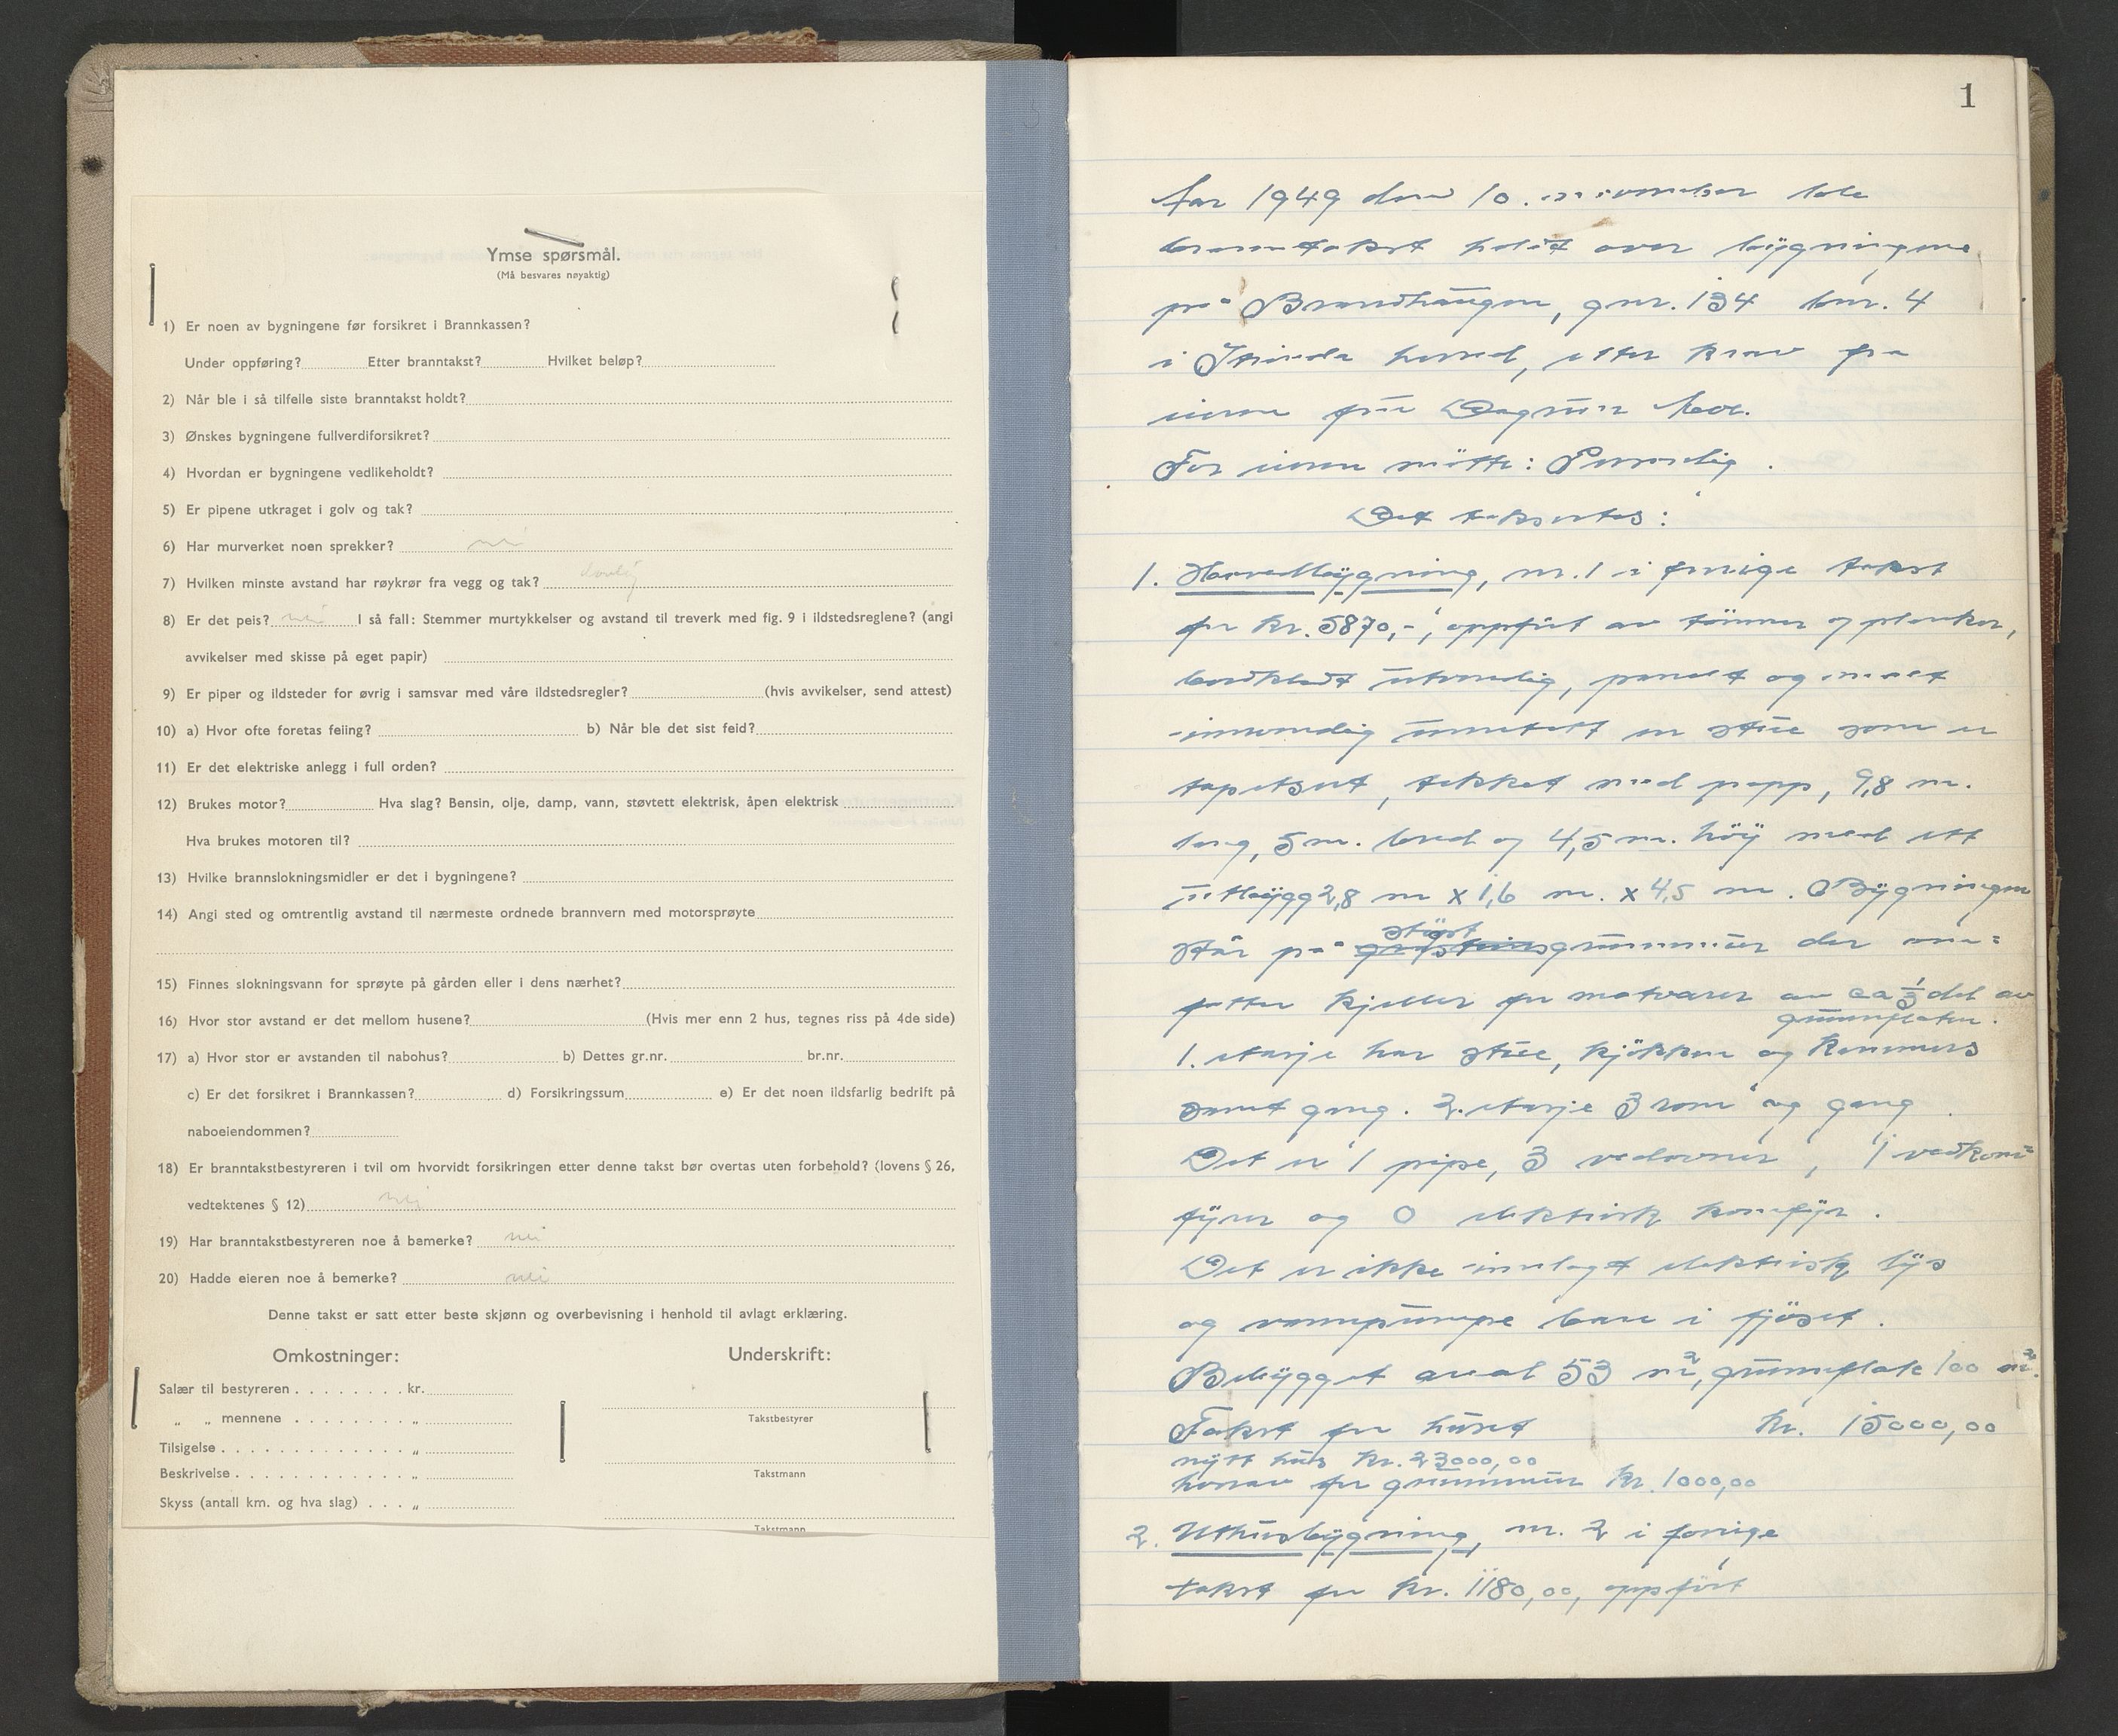 Ymse spørsmål.
(Må besvares nøyaktig)
1) Er noen av bygningene før forsikret i Brannkassen?
Under oppføring? Etter branntakst? Hvilket beløp?
2) Når ble i så tilfelle siste branntakst holdt?
3) Ønskes bygningene fullverdiforsikret?
4) Hvordan er bygningene vedlikeholdt?
5) Er pipene utkraget i golv og tak?
6) Har murverket noen sprekker? nei
7) Hvilken minste avstand har røykrør fra vegg og tak? lovlig
8) Er det peis? nei I så fall: Stemmer murtykkelser og avstand til treverk med fig. 9 i ildstedsreglene? (angi
avvikelser med skisse på eget papir)
9) Er piper og ildsteder for øvrig i samsvar med våre ildstedsregler? (hvis avvikelser, send attest)
10) a) Hvor ofte foretas feiing? b) Når ble det sist feid?
11) Er det elektriske anlegg i full orden?
12) Brukes motor? Hva slag? Bensin, olje, damp, vann, støvtett elektrisk, åpen elektrisk
Hva brukes motoren til?
13) Hvilke brannslokningsmidler er det i bygningene?
14) Angi sted og omtrentlig avstand til nærmeste ordnede brannvern med motorsprøyte
15) Finnes slokningsvann for sprøyte på gården eller i dens nærhet?
16) Hvor stor avstand er det mellom husene? (Hvis mer enn 2 hus, tegnes riss på 4de side)
17) a) Hvor stor er avstanden til nabohus? b) Dettes gr.nr. br.nr.
c) Er det forsikret i Brannkassen? d) Forsikringssum e) Er det noen ildsfarlig bedrift på
naboeiendommen?
18) Er branntakstbestyreren i tvil om hvorvidt forsikringen etter denne takst bør overtas uten forbehold? (lovens § 26,
vedtektenes § 12) nei
19) Har branntakstbestyreren noe å bemerke? nei
20) Hadde eieren noe å bemerke? nei
Denne takst er satt etter beste skjønn og overbevisning i henhold til avlagt erklæring.
Omkostninger:
Underskrift:
Salær til bestyreren . . . . . . . . kr.
„ „ mennene . . . . . . . . . „
Takstbestyrer
Tilsigelse . . . . . . . . . . . . . . „
Beskrivelse . . . . . . . . . . . . . „
Takstmann
Skyss (antall km. og hva slag) . . . „
Takstmann
1
År 1949 den 10. november ble
branntakst holdt over bygningene
på Brandhaugen, gnr. 134 bnr. 4
i Strinda herred, etter krav fra
eieren fru Dagrun Moe.
For eieren møtte: Personlig.
Det takseres:
1. Hovedbygning, nr. 1 i forrige takst
for kr. 5870,-, oppført av tømmer og planker,
bordkledt utvendig, panelt og malt
innvendig unntatt en stue som er
tapetsert, tekket med papp, 9,8 m.
lang, 5 m. bred og 4,5 m. høy med ett
utbygg 2,8 m x 1,6 m. x 4,5 m. Bygningen
støpt
står på gråsteinsgrunnmur der om=
fatter kjeller for matvarer av ca 1/3 del av
grunnflaten.
1. etasje har stue, kjøkken og kammers
samt gang. 2. etasje 3 rom og gang.
Det er 1 pipe, 3 vedovner, 1 vedkom=
fyrer og 0 elektrisk komfyr.
Det er ikke innlagt elektrisk lys
og vannpumpe bare i fjøset.
Bebygget areal 53 m², grunnflate 100 m².
Takst for huset kr. 15000,00
nytt hus kr. 23000,00
herav for grunnmur kr. 1000,00
2. Uthusbygning, nr. 2 i forrige
takst for kr. 1180,00, oppført